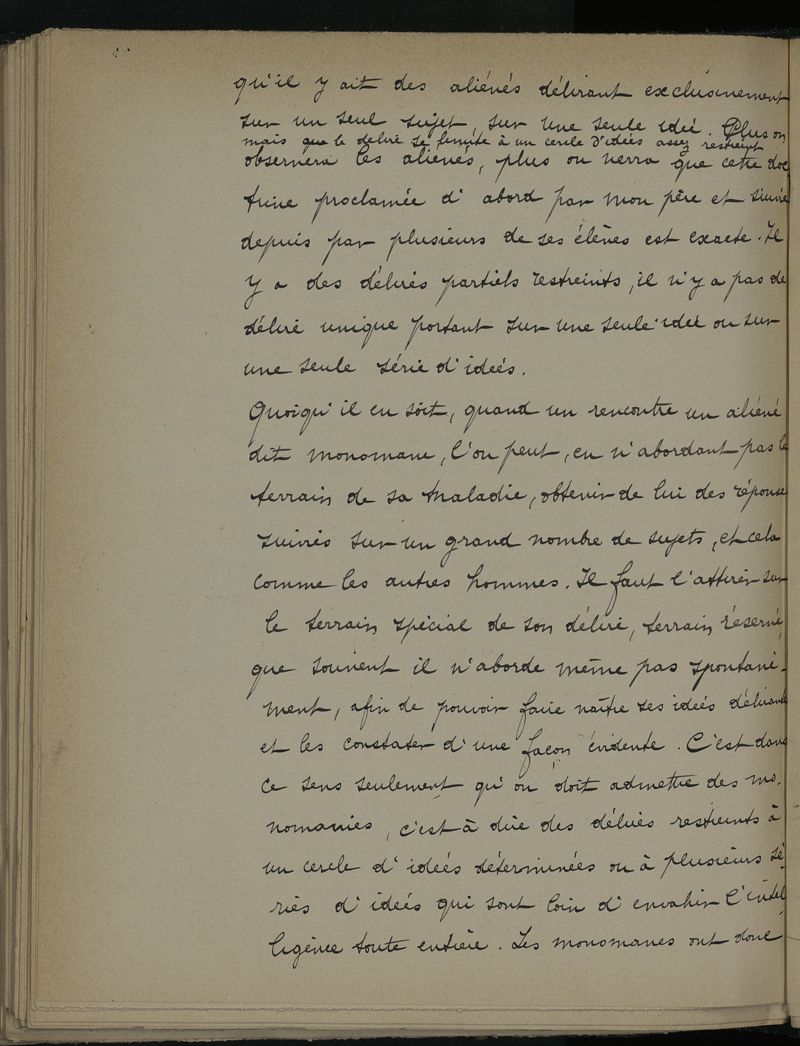 qu'il y ait des aliénés délirant exclusivement
sur un seul sujet, sur une seule idée. Plus on
mais que le délire se limite à un cercle d'idées assez restreint
observera les aliénés, plus on verra que cette doc
trine proclamée d'abord par mon père et suivie
depuis par plusieurs de ses élèves est exacte. Il
y a des délires partiels restreints, il n'y a pas de
délire unique portant sur une seule idée ou sur
une seule série d'idées.
Quoiqu'il en soit, quand un rencontre un aliéné
dit monomane, l'on peut, en n'abordant pas le
terrain de sa maladie, obtenir de lui des réponse
suivies sur un grand nombre de sujets, et cela
comme les autres hommes. Il faut l'attirer sur
le terrain spécial de son délire, terrain réservé,
que souvent il n'aborde même pas spontané-
ment, afin de pouvoir faire naître ses idées délirantes
et les constater d'une façon évidente. C'est dans
ce sens seulement qu'on doit admettre des mo-
nomanies, c'est à dire des délires restreints à
un cercle d'idées déterminées ou à plusieurs sé-
ries d'idées qui sont loin d'envahir l'intel-
ligence toute entière. Les monomanes ont donc